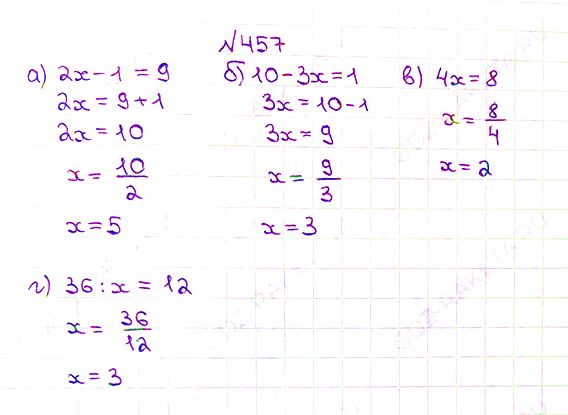 №457
а) 2x - 1 = 9
2x = 9 + 1
2x = 10
x = 10/2
x = 5
б) 10 - 3x = 1
3x = 10 - 1
3x = 9
x = 9/3
x = 3
в) 4x = 8
x = 8/4
x = 2
г) 36 : x = 12
x = 36/12
x = 3